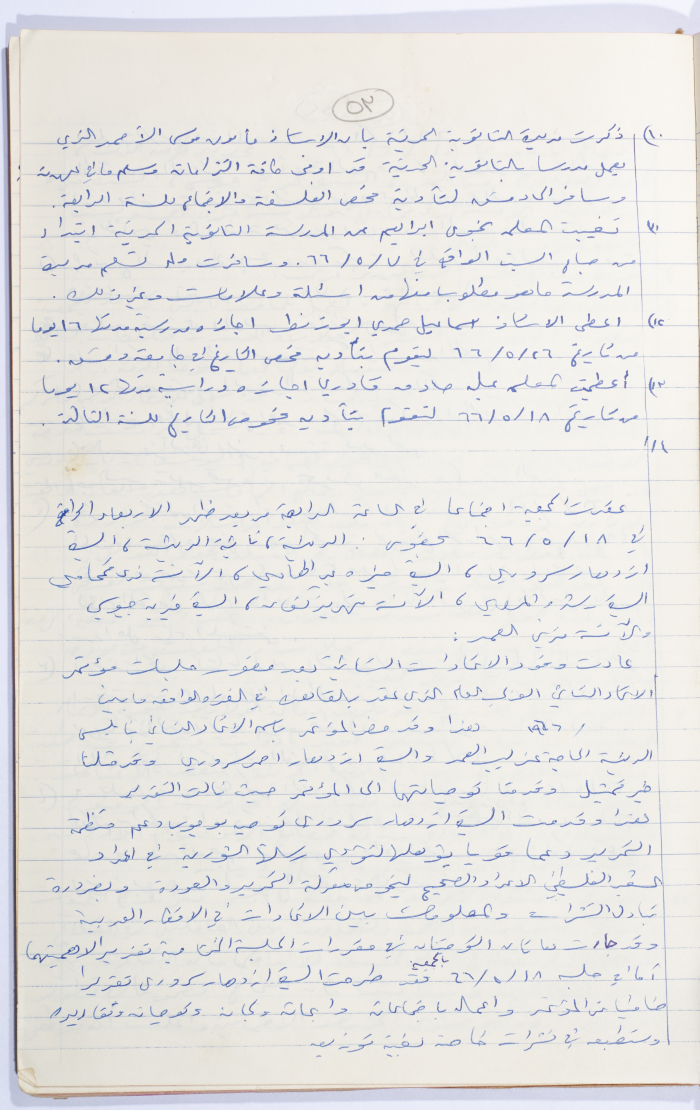 ٥٣
١٠) ذكرت مديرة الثانوية الحرشية بان الاستاذ مأمون موسى الأحمد الذي
يعمل مدرسا بالثانوية الحرشية قد اوفى كافة التزاماته وسلم ما في عهدته
وسافر الى دمشق لتأدية فحص الفلسفة والاجتماع للسنة الرابعة.
تغيبت المعلمة نجوى ابراهيم عن المدرسة الثانوية ابتداء
من صباح السبت الواقع في ٧/٥/٦٦. وسافرت ولم تسلم مديرة
المدرسة ما هو مطلوب منها من اسئلة وعلامات وغير ذلك.
١٢) اعطي الاستاذ اسماعيل حمدي اجازة مدرسية مدتها ١٦ يوما
من تاريخ ٢٦/٥/٦٦ ليقوم بتأدية فحص التاريخ في جامعة دمشق.
١٣) أعطيت المعلمة صادق قادري اجازة دراسية مدتها ١٢ يوما
من تاريخ ١٨/٥/٦٦ لتقوم بتأدية فحوص التاريخ للسنة الثالثة.
١٤
عقدت الجمعية اجتماعا في الساعة الرابعة من بعد ظهر الاربعاء الواقع
في ١٨/٥/٦٦ بحضور: الرئيسة، نائبة الرئيسة، السيدة
ازدهار سروري، السيدة، الآنسة
السيدة، الآنسة، السيدة فيزية
والآنسة العمد:
عادت وفود الاتحادات النسائية بعد حضور جلسات مؤتمر
الاتحاد النسائي الذي عقد بالقاهرة في الفترة الواقعة ما بين
/ ١٩٦٦ هذا وقد حضر المؤتمر باسم الاتحاد النسائي بنابلس
الرئيسة الحاجة عندليب العمد والسيدة ازدهار سروري وقد مثلتا
خير تمثيل وقدمتا توصياتهما الى المؤتمر حيث نالت التقدير
هذا وقدمت السيدة ازدهار سروري توصية بوجوب دعم منظمة
التحرير دعما قويا يؤهلها لتؤدي رسالتها الثورية في اعداد
الشعب الفلسطيني الاعداد الصحيح ليخوض معركة التحرير والعودة وبضرورة
تبادل النشرات والمعلومات بين الاتحادات في الاقطار العربية
وقد جاءت هاتان التوصيتان في مقررات الجلسة الختامية تقديرا لاهميتهما
أما في جلسة ١٨/٥/٦٦ بالجمعية فقد طرحت السيدة ازدهار سروري تقريرا
ضافيا عن المؤتمر واعماله باجتماعاته وابحاثه ولجانه وتوصياته وتقاريره
وستطبعه في نشرات خاصة بغية توزيعه